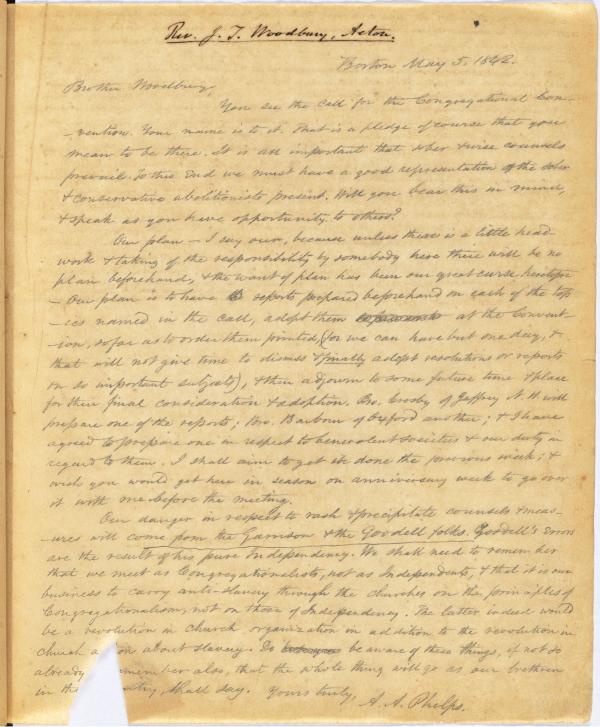 Rev. J. T. Woodbury, Acton.
Boston May 5, 1842.
Brother Woodbury,
You see the call for the Congregational Con-
-vention. Your name is to it. That is a pledge of course that you
mean to be there. It is all important that sober & wise counsels
prevail. To this end we must have a good representation of the sober
& conservative abolitionists present. Will you bear this in mind,
& speak as you have opportunity to others?
Our plan — I say our, because unless there is a little head-
work & taking of the responsibility by somebody here there will be no
plan beforehand, & the want of plan has been our great curse heretofore
— Our plan is to have reports prepared beforehand on each of the top-
-ics named in the call, adopt them at the Convent-
-ion, so far as to order them printed, (for we can have but one day, &
that will not give time to discuss & finally adopt resolutions or reports
on so important subjects), & then adjourn to some future time & place
for their final consideration & adoption. Bro. Crosby of Jaffrey N. H. will
prepare one of the reports; Bro. Barbour of Oxford another; & I have
agreed to prepare one in respect to benevolent societies & our duty in
regard to them. I shall aim to get it done the previous week; &
wish you would get here in season on anniversary week to go over
it with me before the meeting.
Our danger in respect to rash & precipitate counsels & meas-
-ures will come from the Garrison & the Goodell folks. Goodell's Errors
are the result of his pure Independency. We shall need to remember
that we meet as Congregationalists, not as Independents, & that it is our
business to carry anti-slavery through the churches on the principles of
Congregationalism, not on those of Independency. The latter indeed would
be a revolution in church organization in addition to the revolution in
church about slavery. Do be aware of these things, if not so
already also, that the whole thing will go as our brethren
in shall say. Yours truly,
A. A. Phelps.